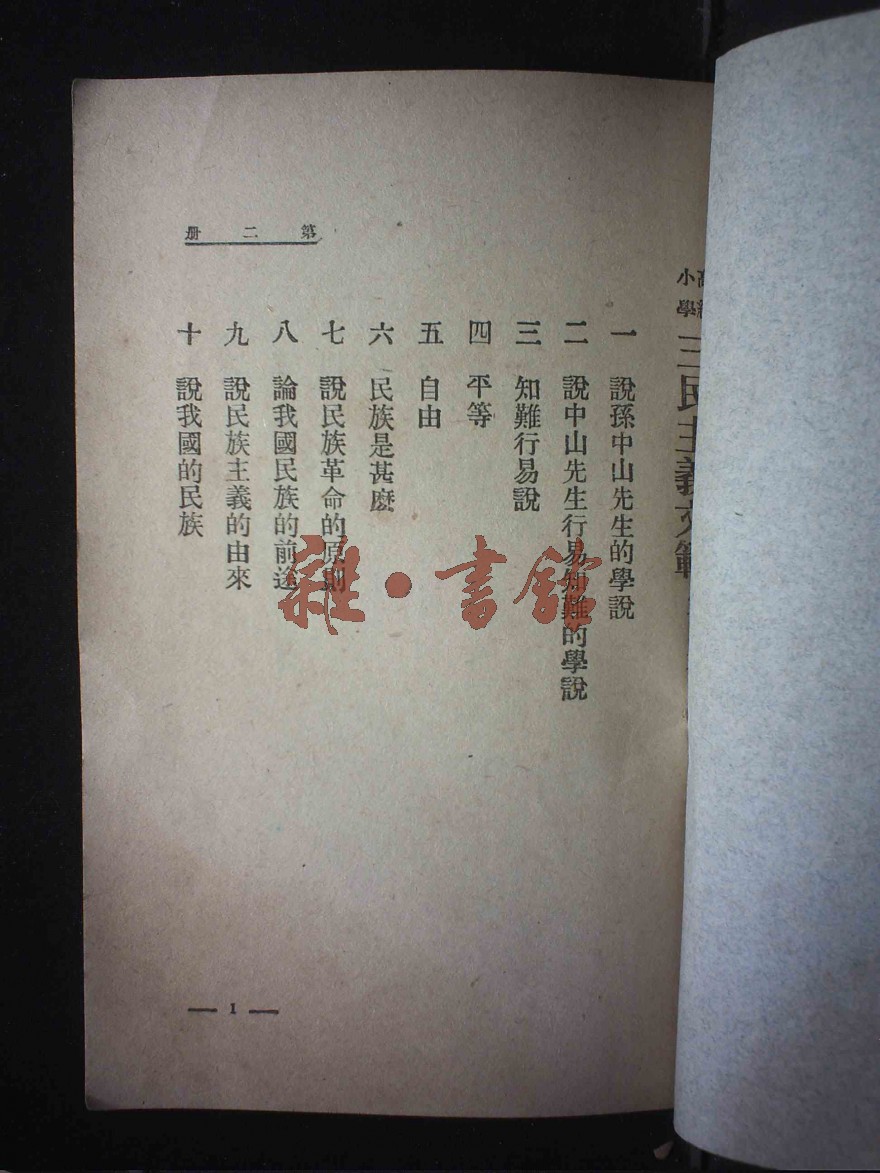 小學
三民主義文範
第二册
一 說孫中山先生的學說
二 說中山先生行易知難的學說
三 知難行易說
四 平等
五 自由
六 民族是甚麼
七 說民族革命的原則
八 論我國民族的前途
九 說民族主義的由來
十 說我國的民族
1
雜·書館